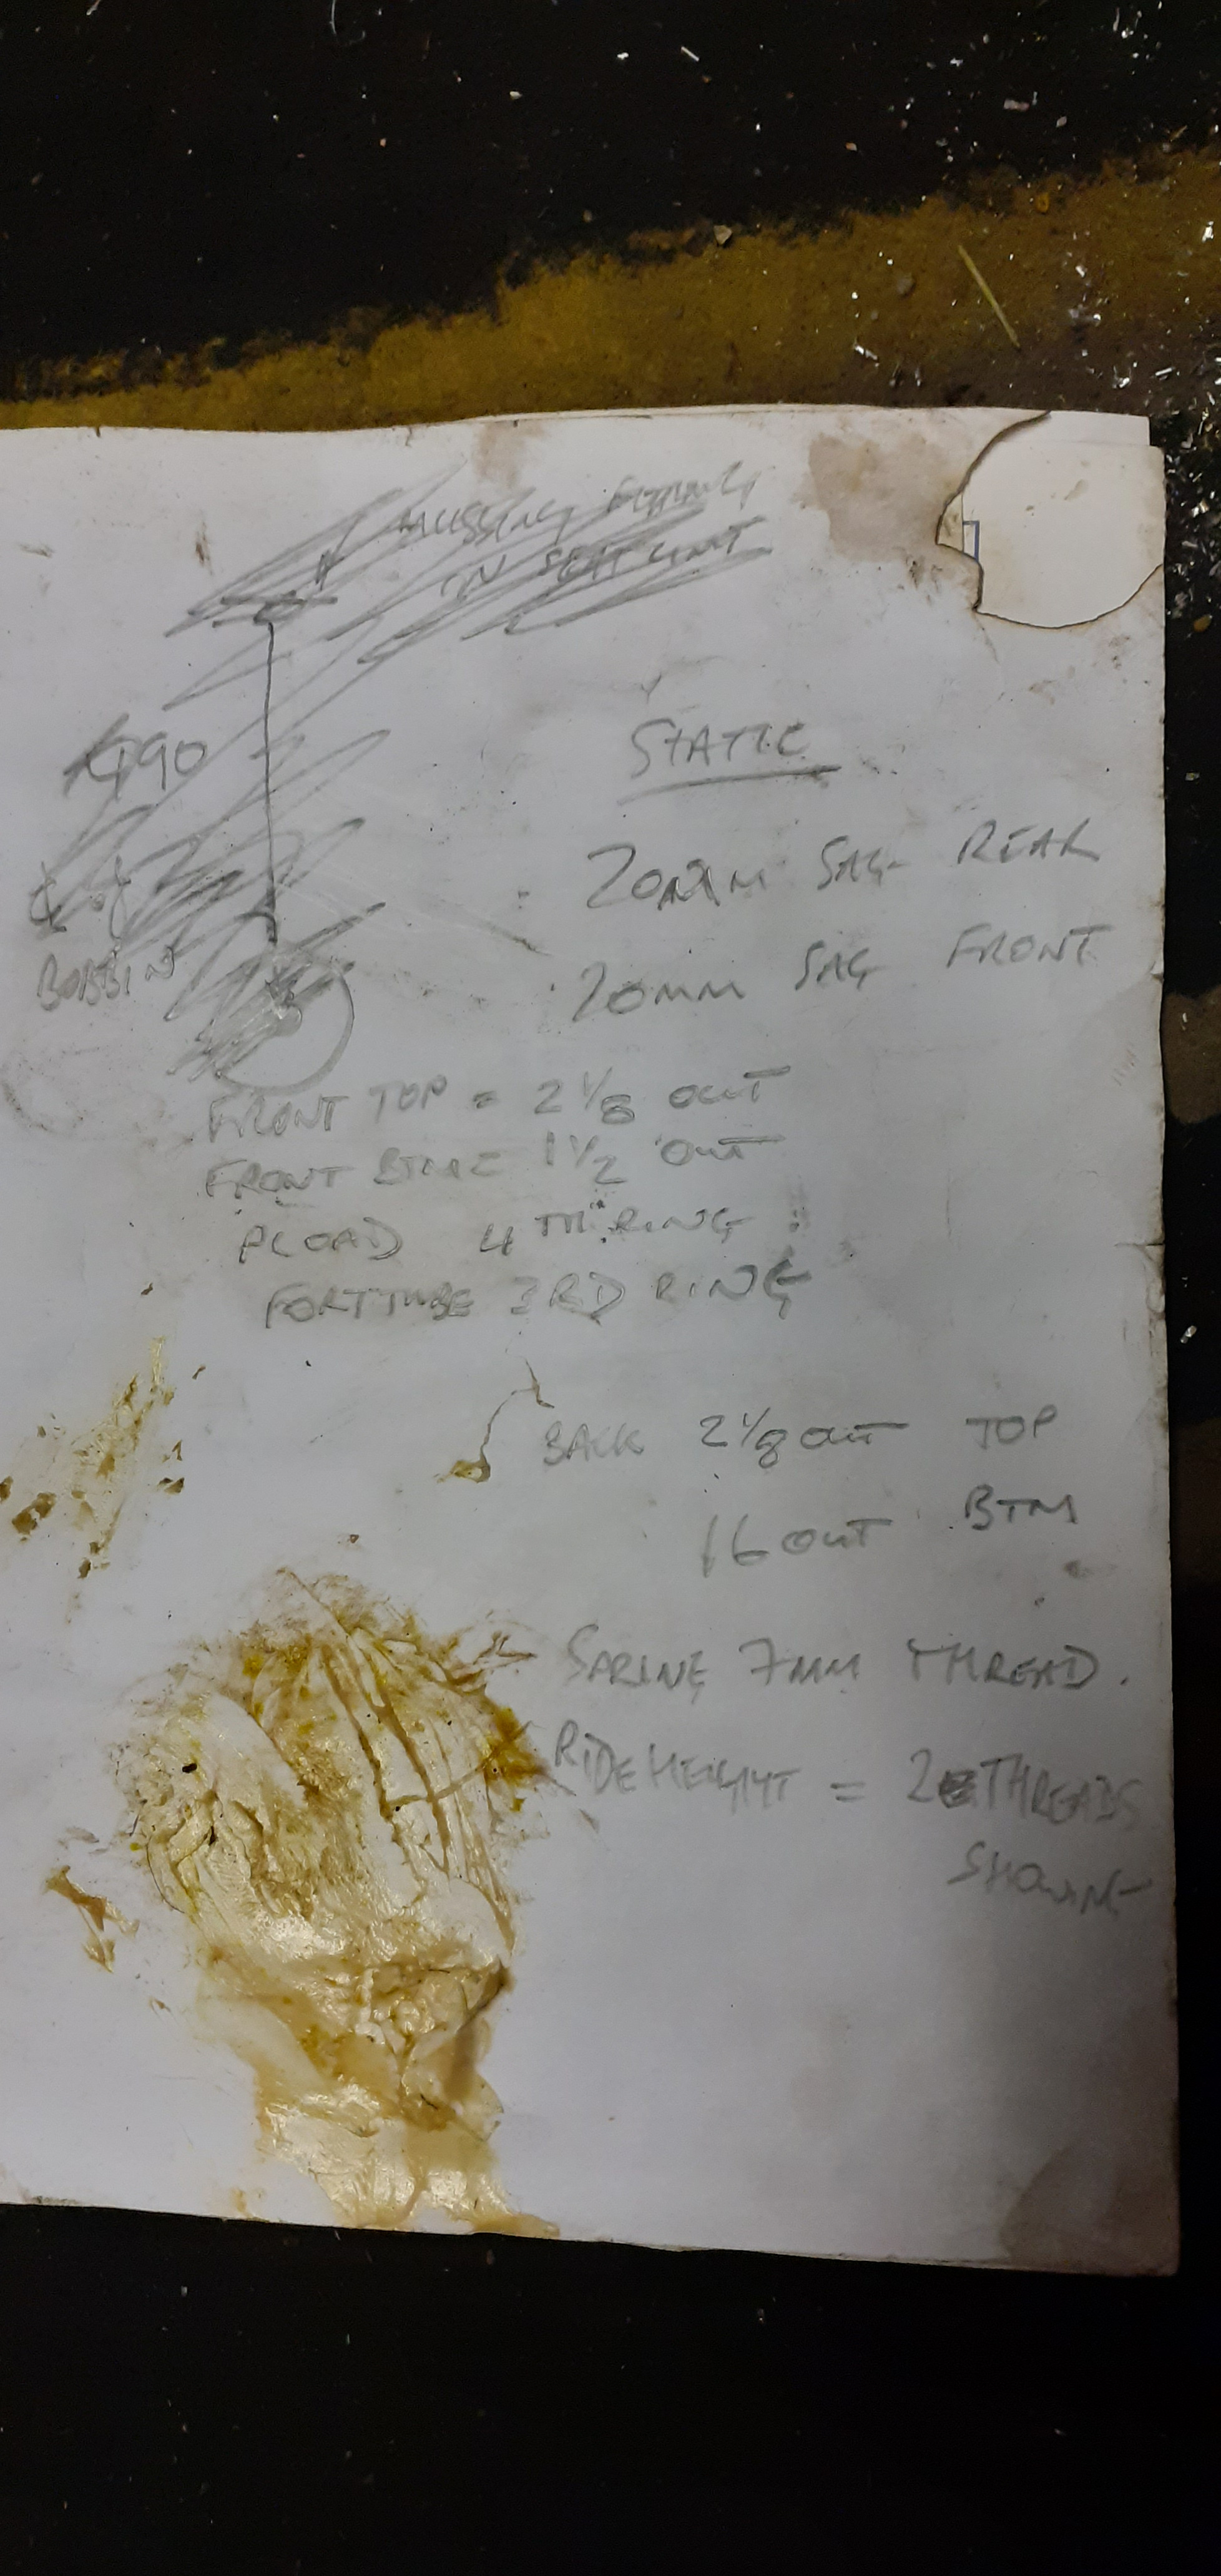 MISSING
IN SEAT UNIT
490
BOBBIN
STATIC
20MM SAG REAR
20MM SAG FRONT
FRONT TOP = 2 1/8 OUT
FRONT BTM = 1 1/2 OUT
PLOAD 4TH RING
FORTTUBE 3RD RING
BACK 2 1/8 OUT TOP
16 OUT BTM
SPRING 7MM THREAD.
RIDE HEIGHT = 2 THREADS
SHOWING